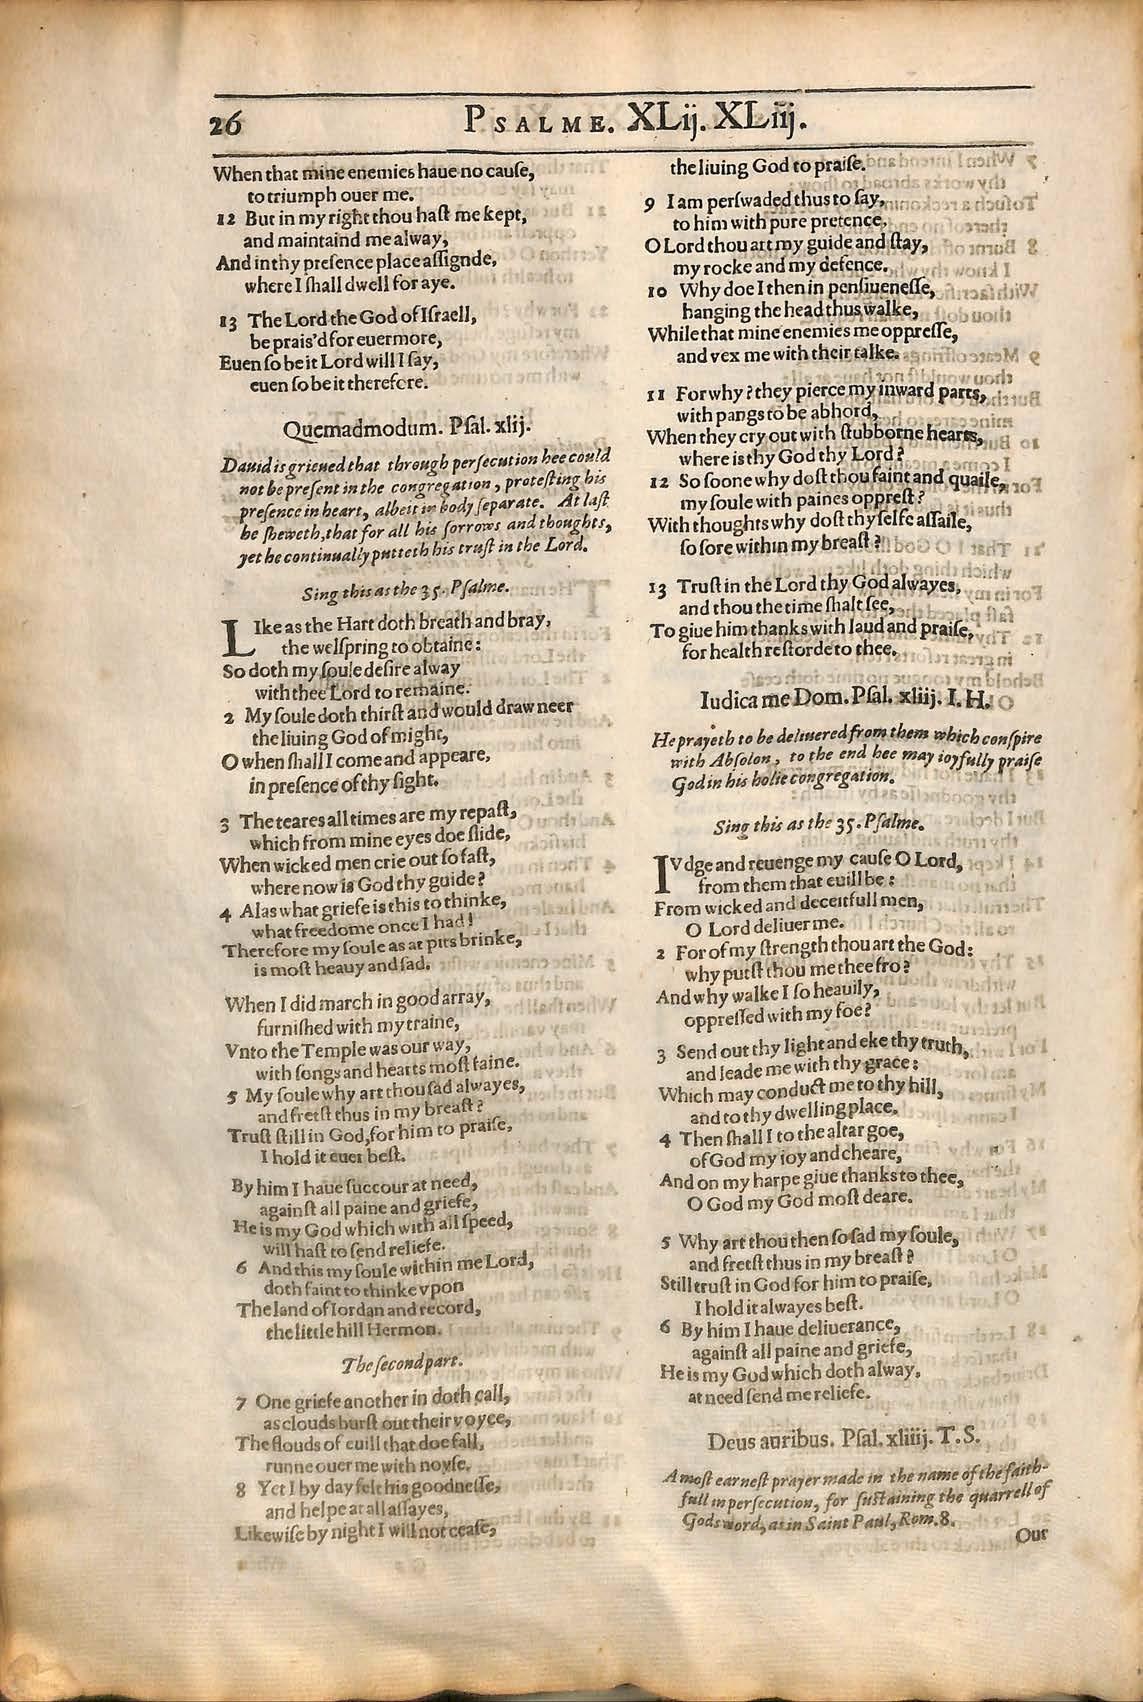 26
PSALME. XLij. XLiij.
When that mine enemies haue no cauſe,
to triumph ouer me.
12 But in my right thou haſt me kept,
and maintaind me alway,
And in thy preſence place aſſignde,
where I ſhall dwell for aye.
13 The Lord the God of Iſraell,
be prais'd for euermore,
Euen ſo be it Lord will I ſay,
euen ſo be it therefore.
Quemadmodum. Pſal. xlij.
Dauid is grieued that through perſecution hee could
not be preſent in the congregation, proteſting his
preſence in heart, albeit in body ſeparate. At laſt
he ſheweth, that for all his ſorrows and thoughts,
yet he continually putteth his truſt in the Lord.
Sing this as the 35. Pſalme.
LIke as the Hart doth breath and bray,
the welſpring to obtaine:
So doth my ſoule deſire alway
with thee Lord to remaine.
2 My ſoule doth thirſt and would draw neer
the liuing God of might,
O when ſhall I come and appeare,
in preſence of thy ſight.
3 The teares all times are my repaſt,
which from mine eyes doe ſlide,
When wicked men crie out ſo faſt,
where now is God thy guide?
4 Alas what griefe is this to thinke,
what freedome once I had!
Therefore my ſoule as at pits brinke,
is moſt heauy and ſad.
When I did march in good array,
furniſhed with my traine,
Vnto the Temple was our way,
with ſongs and hearts moſt faine.
5 My ſoule why art thou ſad alwayes,
and fretſt thus in my breaſt?
Truſt ſtill in God, for him to praiſe,
I hold it euer beſt.
By him I haue ſuccour at need,
againſt all paine and griefe,
He is my God which with all ſpeed,
will haſt to ſend reliefe.
6 And this my ſoule within me Lord,
doth faint to thinke vpon
The land of Iordan and record,
the little hill Hermon.
The ſecond part.
7 One griefe another in doth call,
as clouds burſt out their voyce,
The flouds of euill that doe fall,
runne ouer me with noyſe.
8 Yet I by day felt his goodneſſe,
and helpe at all aſſayes,
Likewiſe by night I will not ceaſe,
the liuing God to praiſe.
9 I am perſwaded thus to ſay,
to him with pure pretence,
O Lord thou art my guide and ſtay,
my rocke and my defence.
10 Why doe I then in penſiueneſſe,
hanging the head thus walke,
While that mine enemies me oppreſſe,
and vex me with their talke.
11 For why? they pierce my inward parts,
with pangs to be abhord,
When they cry out with ſtubborne hearts,
where is thy God thy Lord?
12 So ſoone why doſt thou faint and quaile,
my ſoule with paines oppreſt?
With thoughts why doſt thy ſelfe aſſaile,
ſo ſore within my breaſt?
13 Truſt in the Lord thy God alwayes,
and thou the time ſhalt ſee,
To giue him thanks with laud and praiſe,
for health reſtorde to thee.
Iudica me Dom. Pſal. xliij. I. H.
He prayeth to be deliuered from them which conſpire
with Abſolon, to the end hee may ioyfully praiſe
God in his holie congregation.
Sing this as the 35. Pſalme.
IVdge and reuenge my cauſe O Lord,
from them that euill be:
From wicked and deceitfull men,
O Lord deliuer me.
2 For of my ſtrength thou art the God:
why putſt thou me thee fro?
And why walke I ſo heauily,
oppreſſed with my foe?
3 Send out thy light and eke thy truth,
and leade me with thy grace:
Which may conduct me to thy hill,
and to thy dwelling place.
4 Then ſhall I to the altar goe,
of God my ioy and cheare,
And on my harpe giue thanks to thee,
O God my God moſt deare.
5 Why art thou then ſo ſad my ſoule,
and fretſt thus in my breaſt?
Still truſt in God for him to praiſe,
I hold it alwayes beſt.
6 By him I haue deliuerance,
againſt all paine and griefe,
He is my God which doth alway,
at need ſend me reliefe.
Deus auribus. Pſal. xliiij. T. S.
A moſt earneſt prayer made in the name of the faith-
full in perſecution, for ſuſtaining the quarrell of
Gods word, as in Saint Paul, Rom. 8.
Our